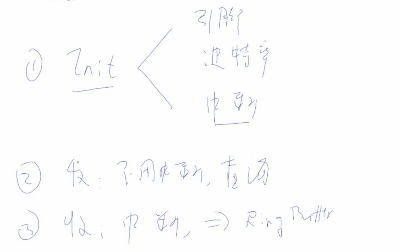 引脚
① Init
波特率
中断
② 发：不用中断，查询
③ 收：中断，⇒ Ring Buffer